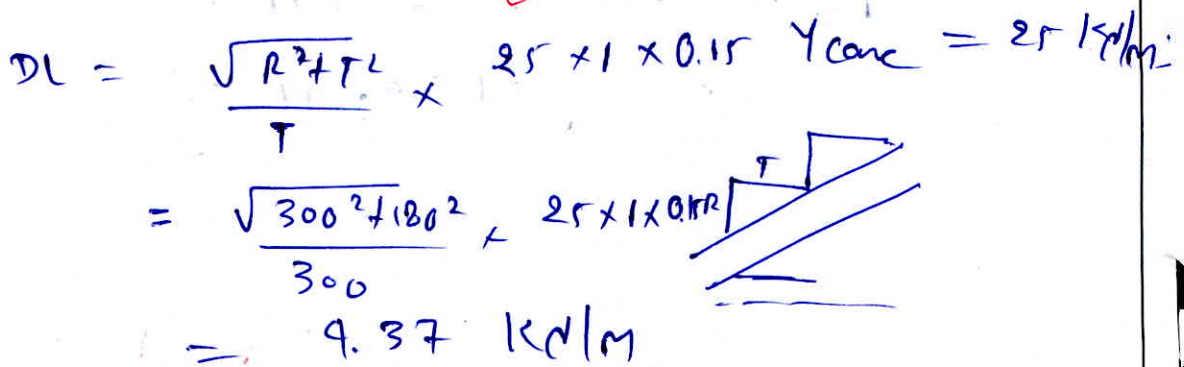 DL = √R²+T² / T × 25 × 1 × 0.15 γ conc = 25 kN/m³
= √300²+180² / 300 × 25 × 1 × 0.15
R T
= 4.37 kN/m